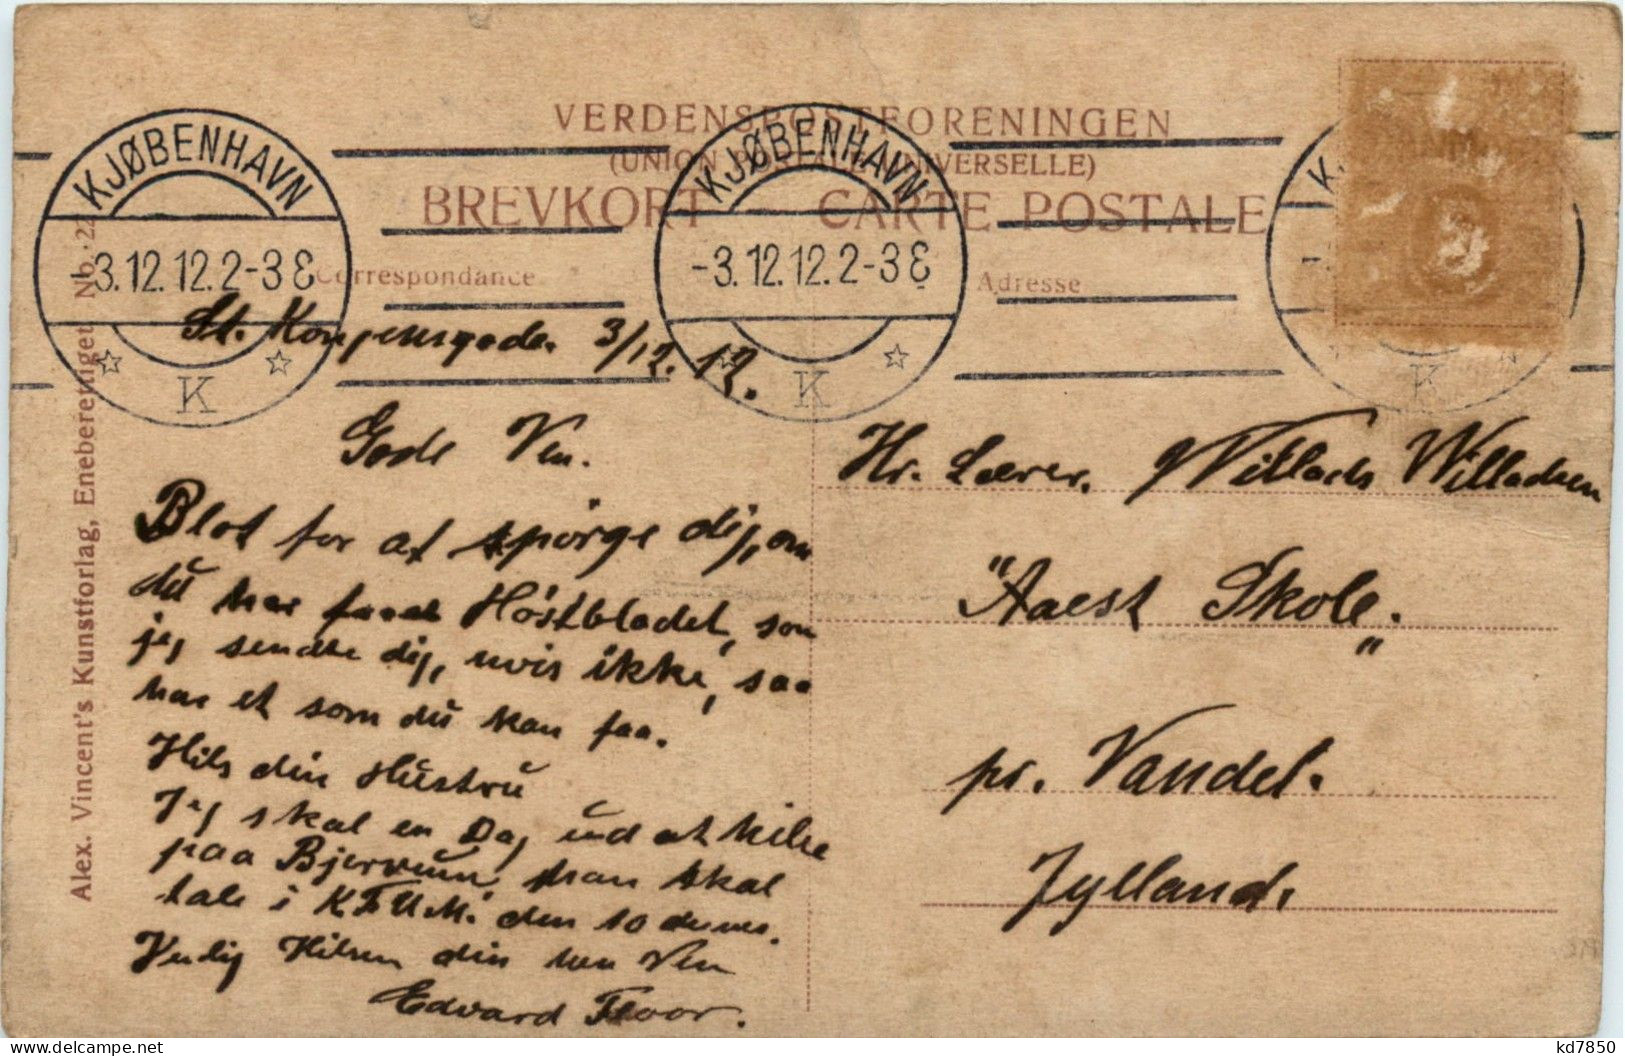 VERDENSPOSTFORENINGEN
(UNION POSTALE UNIVERSELLE)
BREVKORT CARTE POSTALE
Correspondance
Adresse
KJØBENHAVN
-3.12.12.2-3 E
K
KJØBENHAVN
-3.12.12.2-3 E
K
K
Alex. Vincent's Kunstforlag, Eneberettiget Nb. 22
St. Kongensgade. 3/12. 12.
Gode Ven.
Blot for at spörge dig, om
du har faaet Höstbladet, som
jeg sendte dig, hvis ikke, saa
har et som du kan faa.
Hils din Hustru
Jeg skal en Dag ind at hilse
paa Bjerrum, han skal
tale i K F U M. den 10 dennes.
Venlig Hilsen din Ven
Edvard Floor.
Hr. Lærer. Willads Willadsen
"Aaest Skole„.
pr. Vandel.
Jylland.
kd7850